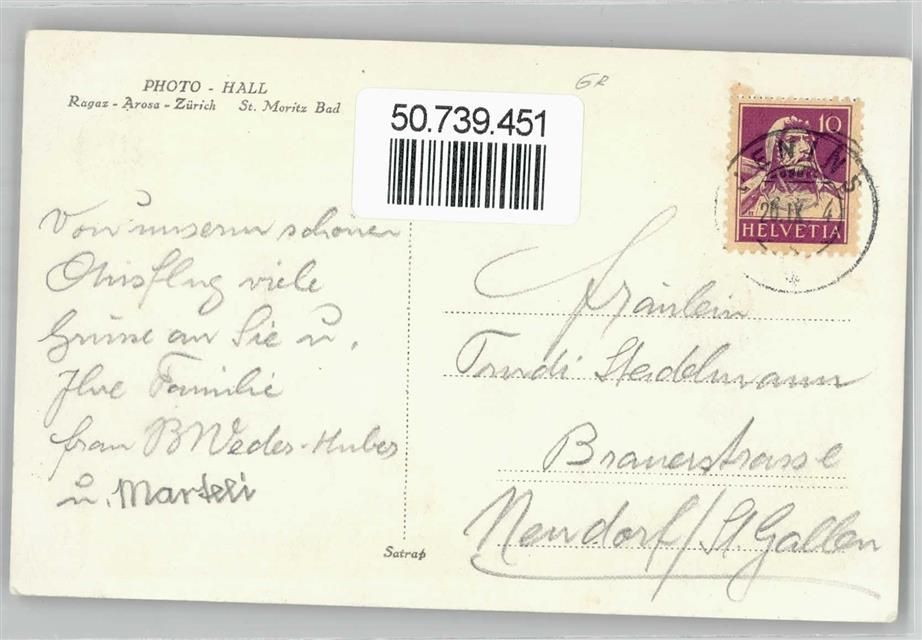 PHOTO - HALL
Ragaz - Arosa - Zürich St. Moritz Bad
GR
50.739.451
10
HELVETIA
28.IX. 4
Von unserm schönen
Ausflug viele
Grüsse an Sie u.
Ihre Familie
frau B Weder-Huber
u. Marteli
Satrap
Fräulein
Trudi Stadelmann
Brauerstrasse
Neudorf / St Gallen